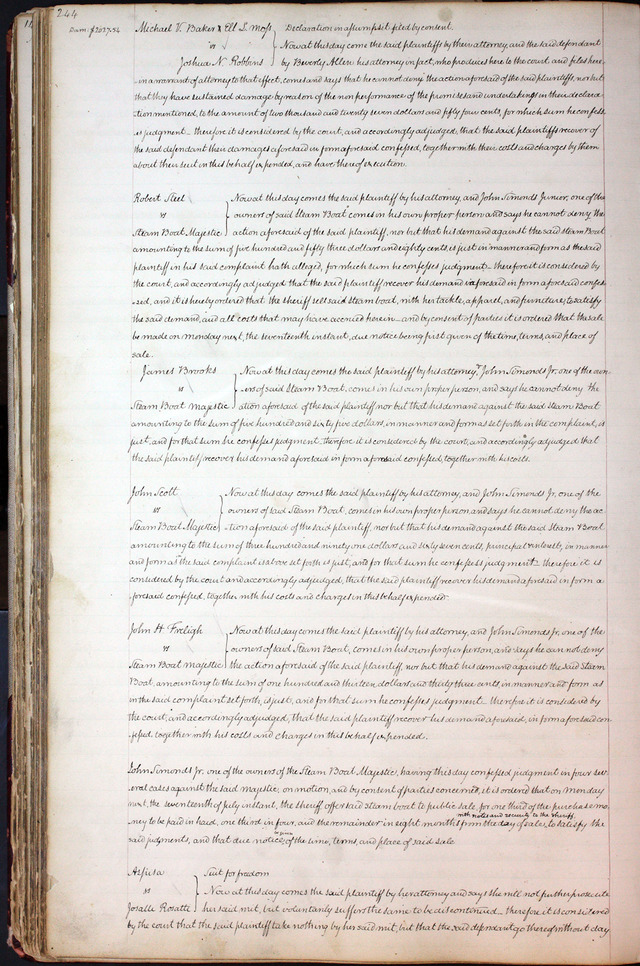 244
Dam: $2027.54
Michael V. Baker & Ell S. Moss } Declaration in assumpsit filed by consent.
vs } Now at this day come the said plaintiffs by their attorney, and the said defendant
Joshua N. Robbins } by Beverly Allen his attorney in fact, who produces here to the court and files here-
in a warrant of attorney to that effect, comes and says that he cannot deny the action aforesaid of the said plaintiffs, nor but
that they have sustained damage by reason of the non performance of the promises and undertakings in their declara-
tion mentioned, to the amount of two thousand and twenty seven dollars and fifty four cents, for which sum he confess-
es judgment_ therefore it is considered by the court, and accordingly adjudged, that the said plaintiffs recover of
the said defendant their damages aforesaid in form aforesaid confessed, together with their costs and charges by them
about their suit in this behalf expended, and have thereof execution.
Robert Steel } Now at this day comes the said plaintiff by his attorney, and John Simonds Junior, one of the
vs } owners of said Steam Boat comes in his own proper person and says he cannot deny the
Steam Boat Majestic } action aforesaid of the said plaintiff, nor but that his demand against the said Steam Boat
amounting to the sum of five hundred and fifty three dollars and eighty cents, is just in manner and form as the said
plaintiff in his said complaint hath alleged, for which sum he confesses judgment_ therefore it is considered by
the court, and accordingly adjudged that the said plaintiff recover his demand aforesaid in form aforesaid confes-
sed, and it is hereby ordered that the sheriff sell said steam boat, with her tackle, apparel, and furniture, to satisfy
the said demand, and all costs that may have accrued herein_ and by consent of parties it is ordered that the sale
be made on Monday next, the seventeenth instant, due notice being first given of the time, terms, and place of
sale.
James Brooks } Now at this day comes the said plaintiff by his attorney, & John Simonds Jr. one of the own-
vs } ers of said Steam Boat, comes in his own proper person, and says he cannot deny the
Steam Boat Majestic } action aforesaid of the said plaintiff nor but that his demand against the said Steam Boat
amounting to the sum of five hundred and sixty five dollars, in manner and form as set forth in the complaint, is
just, and for that sum he confesses judgment_ therefore it is considered by the court, and accordingly adjudged that
the said plaintiff recover his demand aforesaid in form aforesaid confessed, together with his costs.
John Scott } Now at this day comes the said plaintiff by his attorney, and John Simonds Jr. one of the
vs } owners of said Steam Boat, comes in his own proper person and says he cannot deny the ac-
Steam Boat Majestic } tion aforesaid of the said plaintiff, nor but that his demand against the said Steam Boat
amounting to the sum of three hundred and ninety one dollars and sixty seven cents, principal & interest, in manner
and form as the said complaint is above set forth is just, and for that sum he confesses judgment_ therefore it is
considered by the court and accordingly adjudged, that the said plaintiff recover his demand aforesaid in form a-
foresaid confessed, together with his costs and charges in this behalf expended.
John H. Freligh } Now at this day comes the said plaintiff by his attorney, and John Simonds Jr. one of the
vs } owners of said Steam Boat, comes in his own proper person, and says he can not deny
Steam Boat majestic } the action aforesaid of the said plaintiff, nor but that his demand against the said Steam
Boat, amounting to the sum of one hundred and thirteen dollars and thirty three cents, in manner and form as
in the said complaint set forth, is just, and for that sum he confesses judgment_ therefore it is considered by
the court, and accordingly adjudged, that the said plaintiff recover his demand aforesaid, in form aforesaid con-
fessed, together with his costs and charges in this behalf expended.
John Simonds Jr. one of the owners of the Steam Boat Majestic, having this day confessed judgment in four sev-
eral cases against the said majestic, on motion, and by consent of parties concerned, it is ordered that on Monday
next, the seventeenth of July instant, the sheriff offer said steam boat to public sale, for one third of the purchase mo-
ney to be paid in hand, one third in four, and the remainder in eight months with notes and security to the sheriff, from the day of sale, to satisfy the
said judgments, and that due notice be given of the time, terms, and place of said sale.
Aspisa } Suit for freedom
vs } Now at this day comes the said plaintiff by her attorney and says she will not further prosecute
Josatte Rosatte } her said writ, but voluntarily suffers the same to be discontinued_ therefore it is considered
by the court that the said plaintiff take nothing by her said writ, but that the said defendant go thereof without day